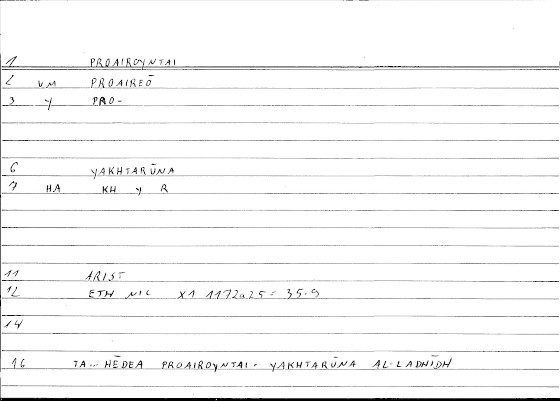 1 PROAIROYNTAI
2 VM PROAIREŌ
3 Y PRO-
6 YAKHTARŪNA
7 HA KH Y R
11 ARIST
12 ETH NIC X1 1172a25 = 35.9
14
16 TA... HĒDEA PROAIROYNTAI = YAKHTARŪNA AL-LADHĪDH